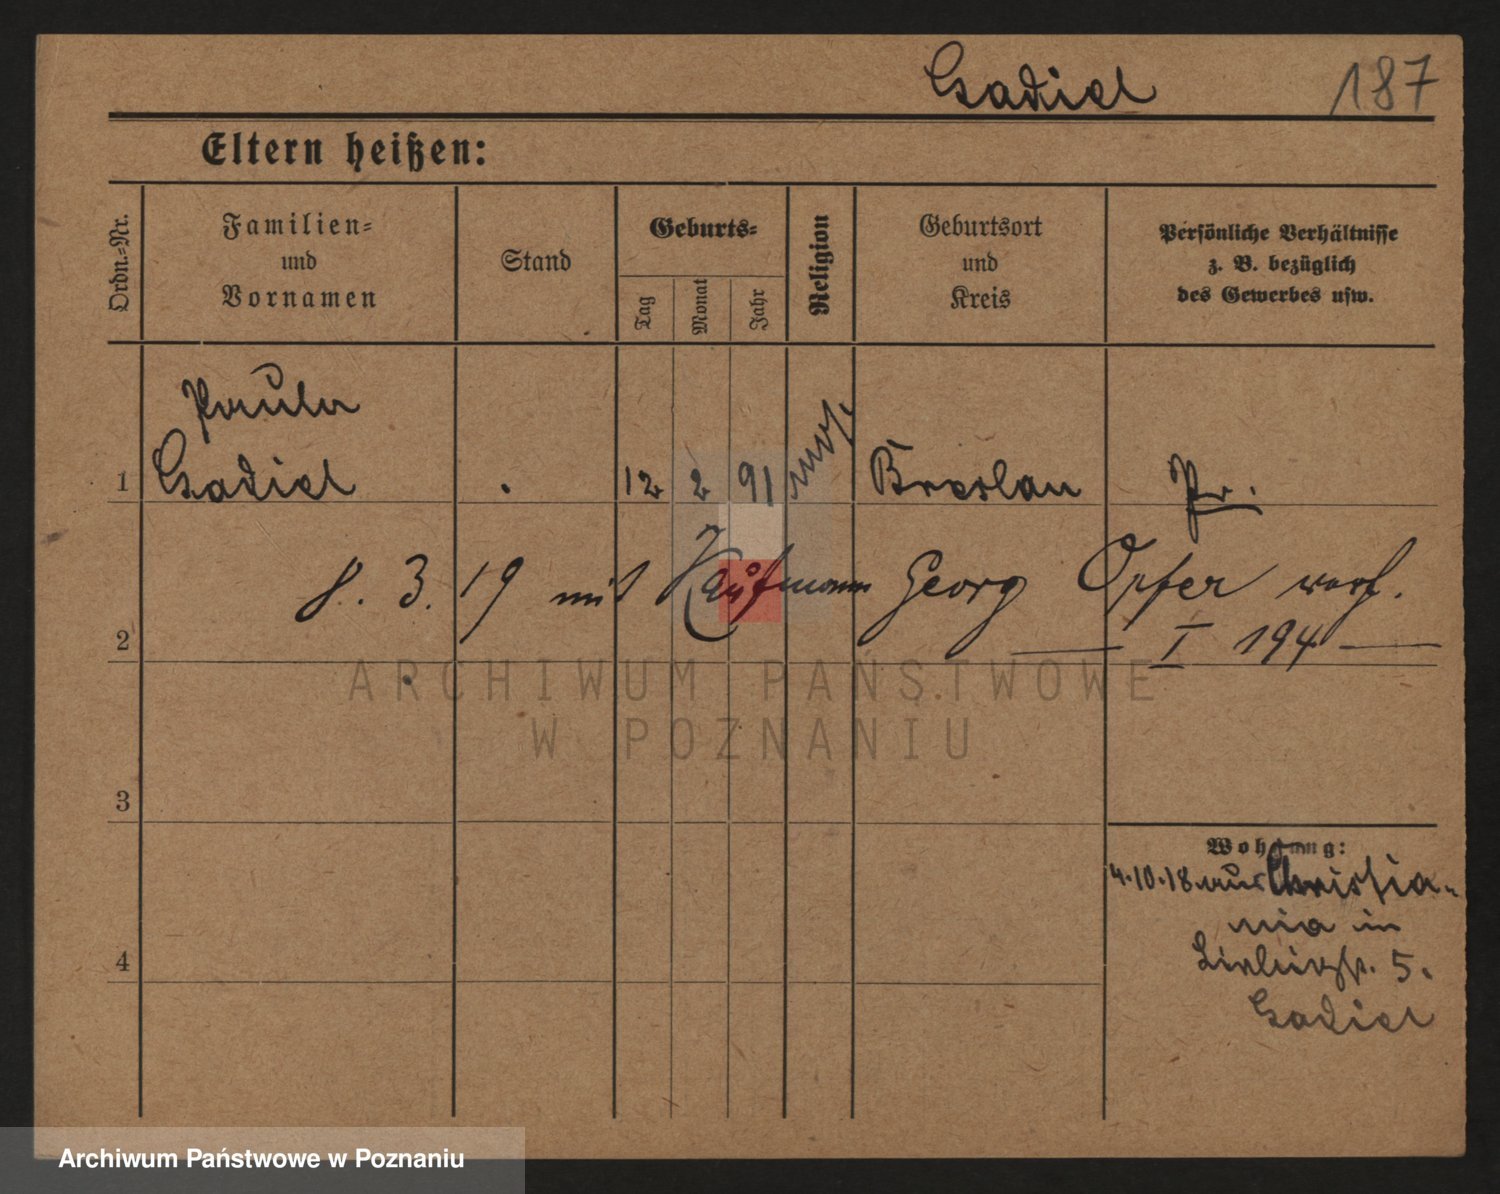 Gadiel 187
Eltern heißen:
Ordn.-Nr.
Familien-
und
Vornamen
Stand
Geburts-
Tag
Monat
Jahr
Religion
Geburtsort
und
Kreis
Persönliche Verhältnisse
z. B. bezüglich
des Gewerbes usw.
Paula
1 Gadiel 12 2 91 mos. Breslau Pr.
8. 3. 19 mit Kaufmann Georg Opfer verh.
2 I 194
ARCHIWUM PAŃSTWOWE
W POZNANIU
3
Wohnung:
4.10.18 aus Christia-
nia in
4 5.
Gadiel
Archiwum Państwowe w Poznaniu